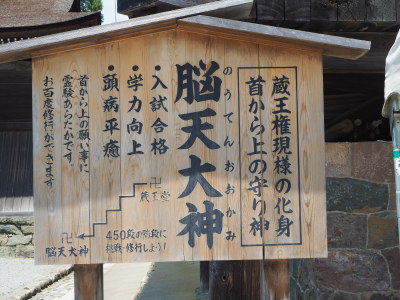 蔵王権現様の化身
首から上の守り神
脳天大神
のうてんおおかみ
・入試合格
・学力向上
・頭病平癒
首から上の願い事に
霊験あらたかです。
お百度修行ができます
卍蔵王堂
卍
脳天大神
450段の階段に
挑戦・修行しよう!